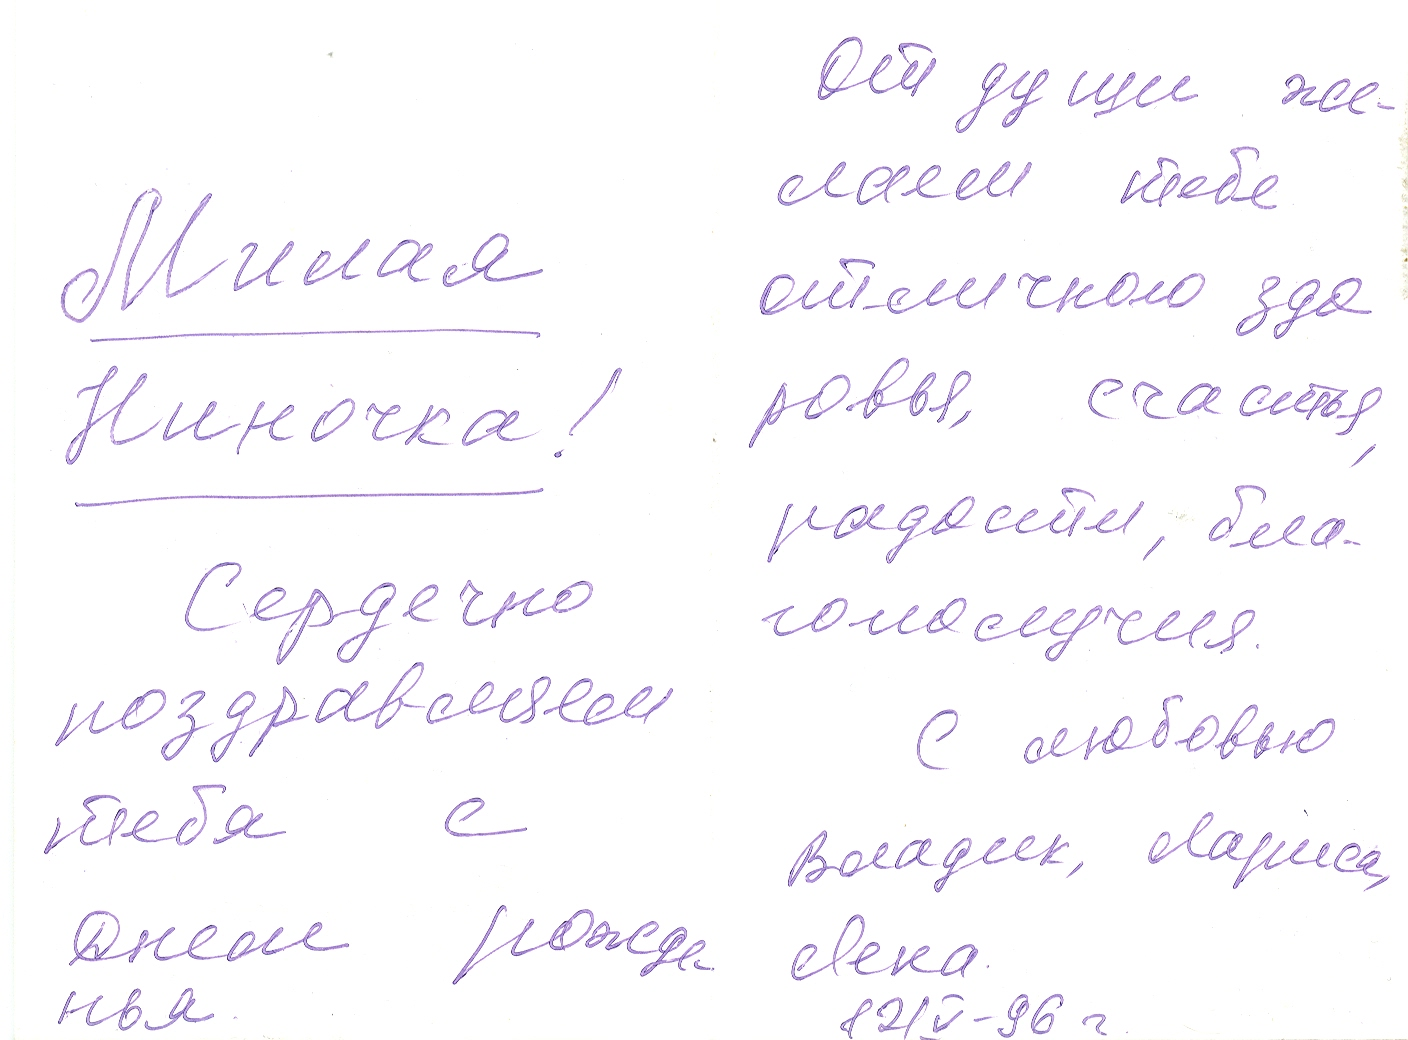 Милая
Ниночка!
Сердечно
поздравляем
тебя с
Днем рожде
нья.
От души же-
лаем тебе
отличного здо
ровья, счастья,
радости, бла-
гополучия.
С любовью
Владик, Лариса,
Лена.
12/V-96 г.